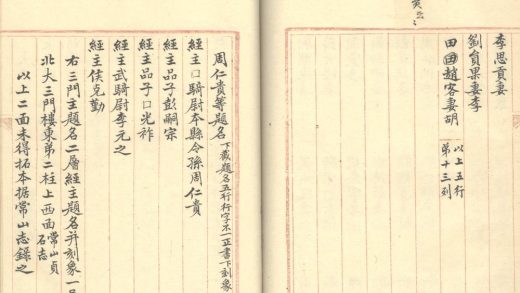 李思貢妻
劉員果妻李
田囬趙客妻胡
以上五行
弟十三列
周仁貴等題名 下截題名五行行字不一正書下刻象
經主口騎尉本縣令孫周仁貴
經主品子彭嗣宗
經主品子口光祚
經主武騎尉李元之
經主侯克勤
右三門主題名二層經主題名并刻象一
北大三門樓東弟二柱上西面 常山貞石志
以上二面未得拓本据常山志錄之